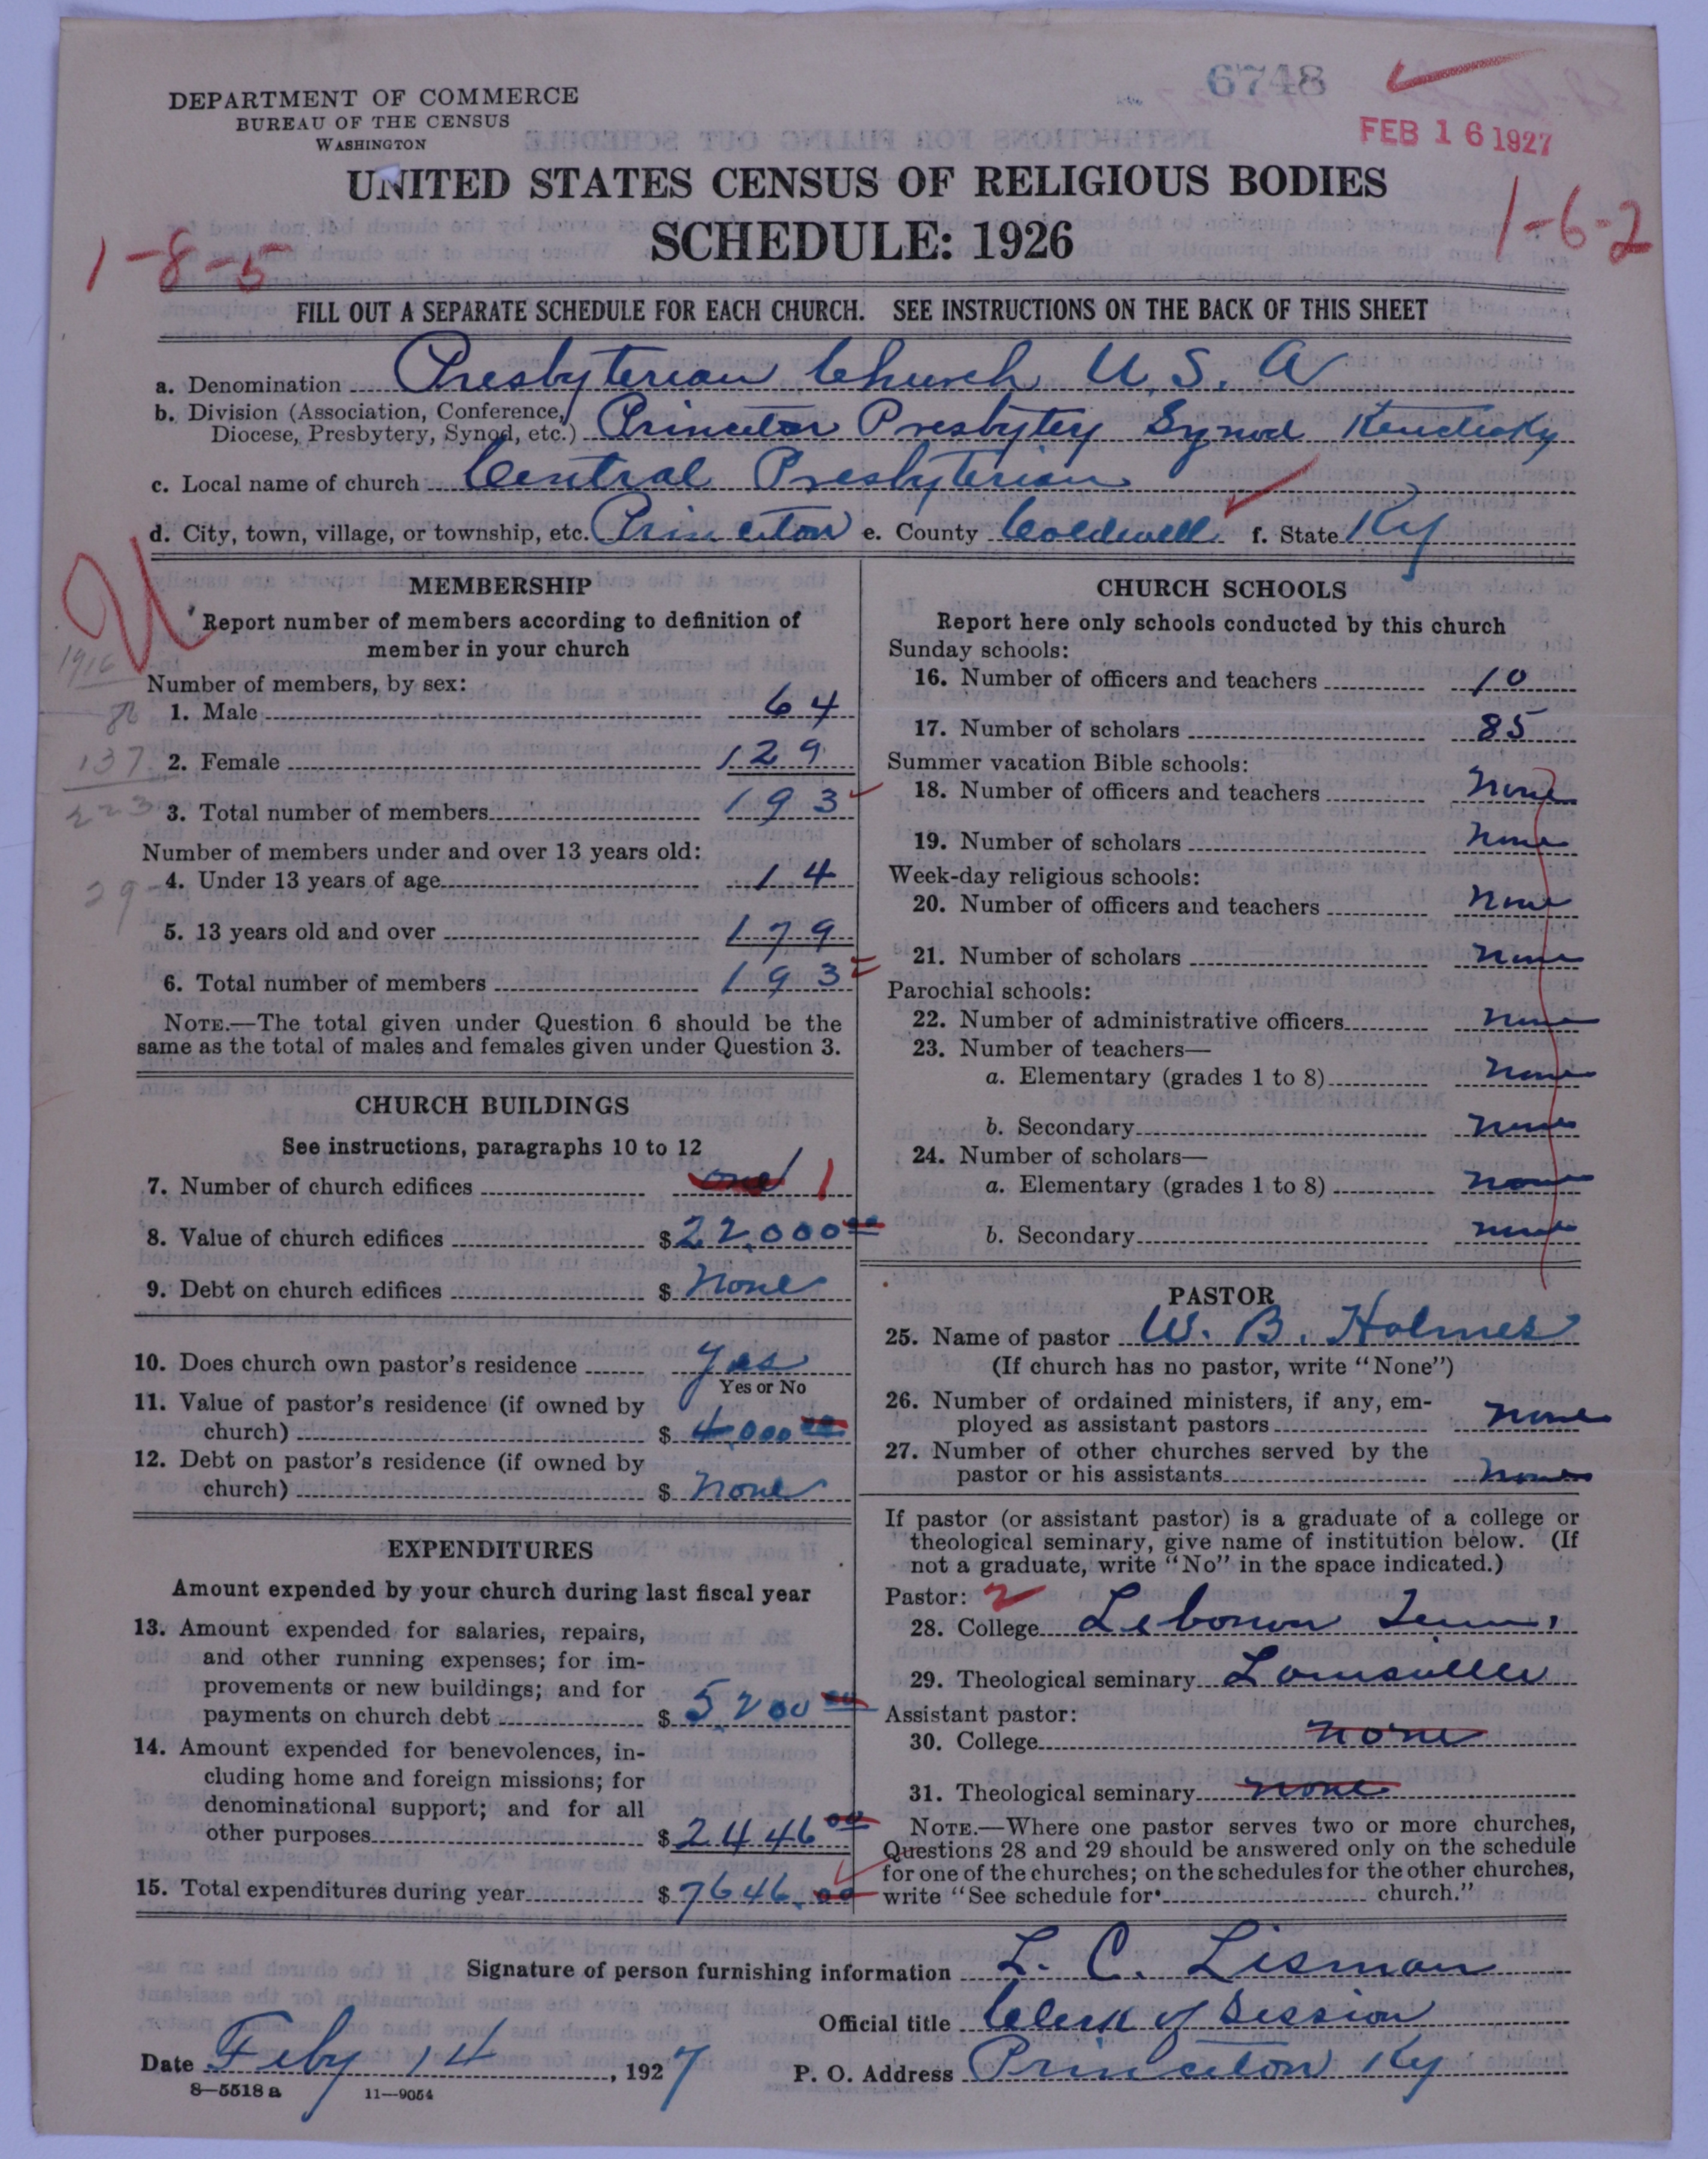 6748
DEPARTMENT OF COMMERCE
BUREAU OF THE CENSUS
WASHINGTON
FEB 16 1927
UNITED STATES CENSUS OF RELIGIOUS BODIES
SCHEDULE: 1926
1-8-5
1-6-2
FILL OUT A SEPARATE SCHEDULE FOR EACH CHURCH. SEE INSTRUCTIONS ON THE BACK OF THIS SHEET
a. Denomination Presbyterian Church U.S.A
b. Division (Association, Conference,
Diocese, Presbytery, Synod, etc.) Princeton Presbytery Synod Kentucky
c. Local name of church Central Presbyterian
d. City, town, village, or township, etc. Princeton e. County Coldwell f. State Ky
MEMBERSHIP
Report number of members according to definition of
member in your church
1916
Number of members, by sex:
1. Male 64
86
2. Female 129
137
3. Total number of members 193
223
Number of members under and over 13 years old:
4. Under 13 years of age 14
29
5. 13 years old and over 179
6. Total number of members 193
NOTE.—The total given under Question 6 should be the
same as the total of males and females given under Question 3.
CHURCH BUILDINGS
See instructions, paragraphs 10 to 12
7. Number of church edifices one 1
8. Value of church edifices $22,000 00
9. Debt on church edifices $ None
10. Does church own pastor's residence Yes
Yes or No
11. Value of pastor's residence (if owned by
church) $ 4,000 00
12. Debt on pastor's residence (if owned by
church) $ None
EXPENDITURES
Amount expended by your church during last fiscal year
13. Amount expended for salaries, repairs,
and other running expenses; for im-
provements or new buildings; and for
payments on church debt $ 5,200 00
14. Amount expended for benevolences, in-
cluding home and foreign missions; for
denominational support; and for all
other purposes $ 2446 00
15. Total expenditures during year $ 7646.00
CHURCH SCHOOLS
Report here only schools conducted by this church
Sunday schools:
16. Number of officers and teachers 10
17. Number of scholars 85
Summer vacation Bible schools:
18. Number of officers and teachers None
19. Number of scholars None
Week-day religious schools:
20. Number of officers and teachers None
21. Number of scholars None
Parochial schools:
22. Number of administrative officers None
23. Number of teachers—
a. Elementary (grades 1 to 8) None
b. Secondary None
24. Number of scholars—
a. Elementary (grades 1 to 8) None
b. Secondary None
PASTOR
25. Name of pastor W. B. Holmes
(If church has no pastor, write "None")
26. Number of ordained ministers, if any, em-
ployed as assistant pastors None
27. Number of other churches served by the
pastor or his assistants None
If pastor (or assistant pastor) is a graduate of a college or
theological seminary, give name of institution below. (If
not a graduate, write "No" in the space indicated.)
Pastor: 2
28. College Lebonon
29. Theological seminary Louisville
Assistant pastor:
30. College none
31. Theological seminary none
NOTE.—Where one pastor serves two or more churches,
Questions 28 and 29 should be answered only on the schedule
for one of the churches; on the schedules for the other churches,
write "See schedule for church."
Signature of person furnishing information L. C. Lisman
Official title Clerk of Session
Date Feby 14, 1927 P. O. Address Princeton Ky
8—5518 a 11—9054